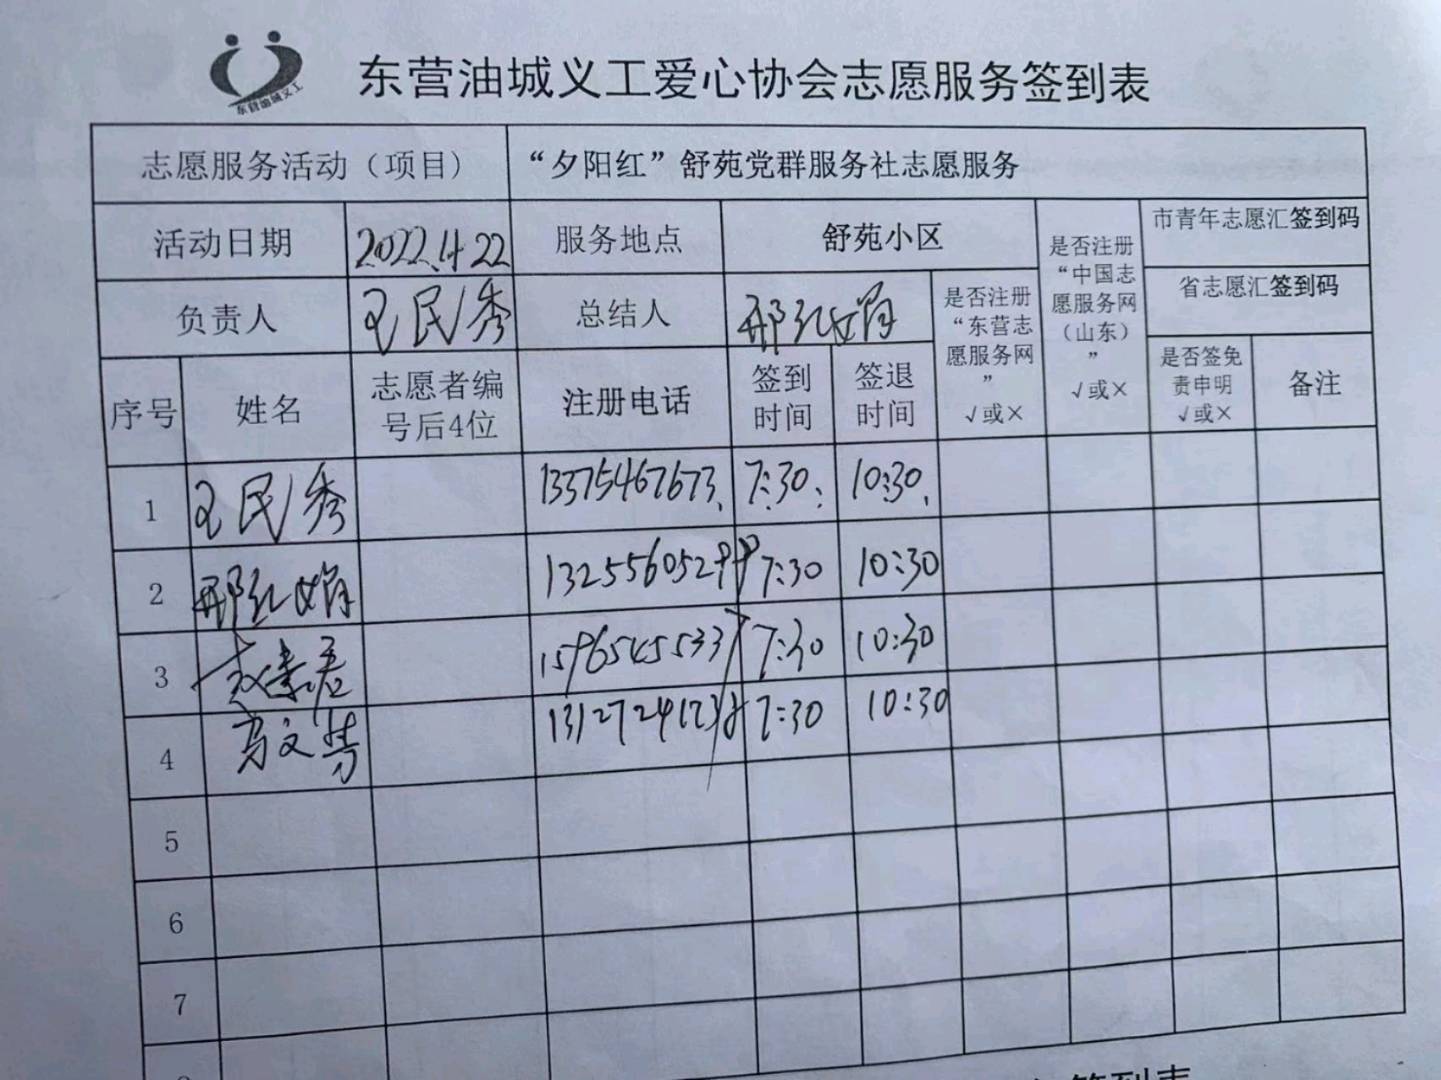 东营油城义工
东营油城义工爱心协会志愿服务签到表
志愿服务活动（项目） “夕阳红”舒苑党群服务社志愿服务
活动日期 2022.4.22 服务地点 舒苑小区
负责人 王民秀 总结人 邢红娟
是否注册“东营志愿服务网” √或×
是否注册“中国志愿服务网（山东）” √或×
市青年志愿汇签到码
省志愿汇签到码
序号 姓名 志愿者编号后4位 注册电话 签到时间 签退时间 是否签免责申明 √或× 备注
1 王民秀 13375467673. 7:30: 10:30.
2 邢红娟 7:30 10:30
3 7:30 10:30
4 7:30 10:30
5
6
7
签到表